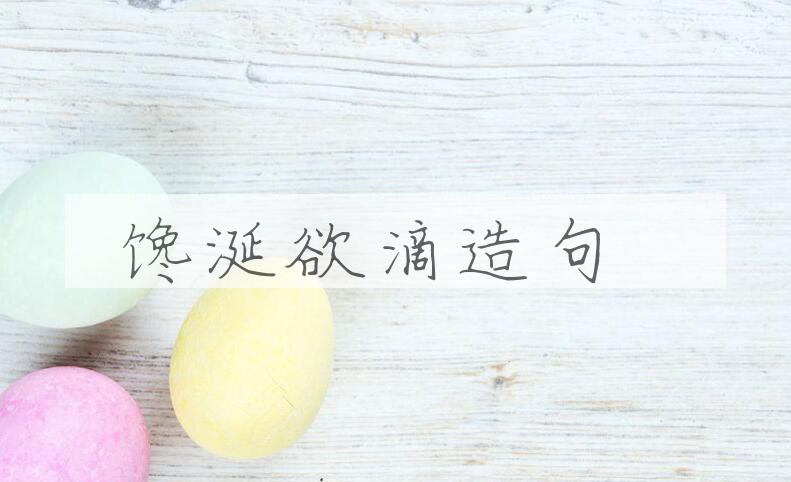 馋涎欲滴造句